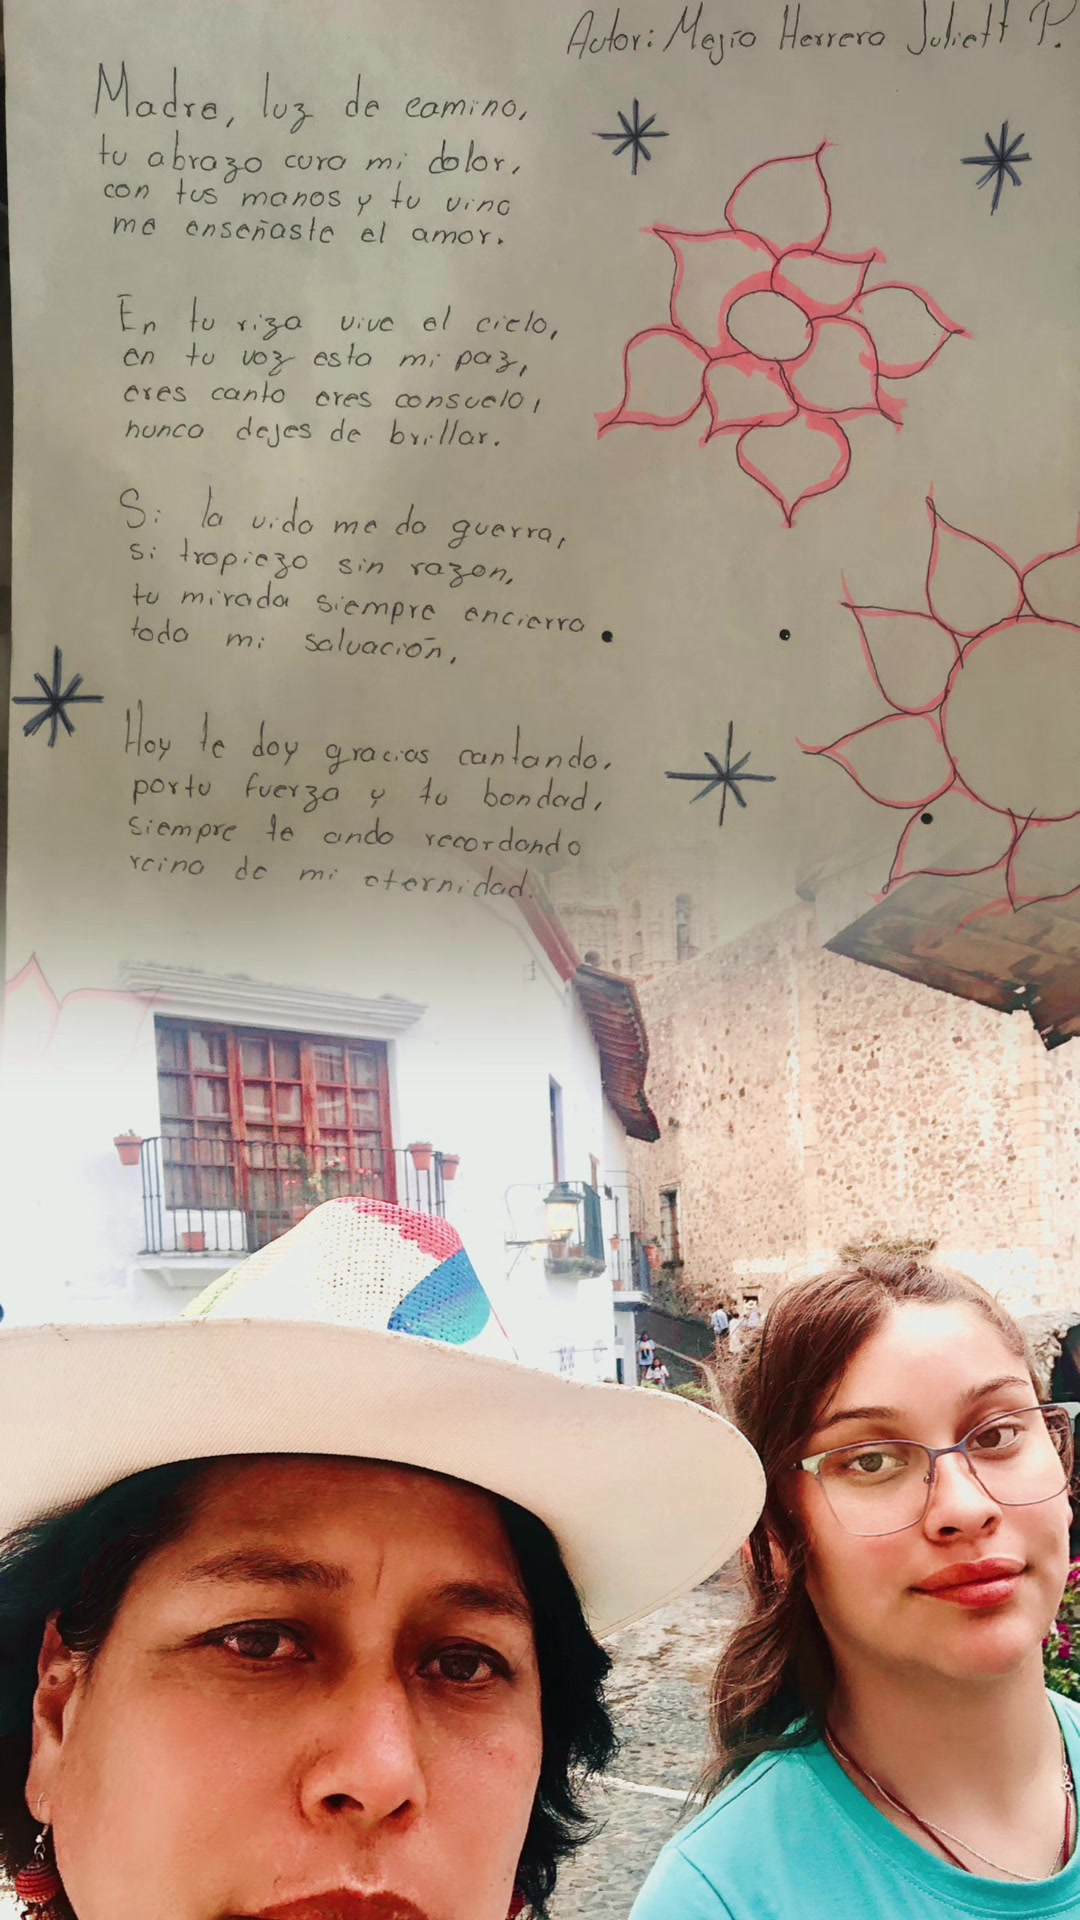 Autor: Mejío Herrera Juliett P.
Madre, luz de camino,
tu abrazo cura mi dolor,
con tus manos y tu vino
me enseñaste el amor.
En tu riza vive el cielo,
en tu voz esta mi paz,
eres canto eres consuelo,
nunca dejes de brillar.
Si la vida me da guerra,
si tropiezo sin razon,
tu mirada siempre encierra
toda mi salvación.
Hoy te doy gracias cantando.
por tu fuerza y tu bondad,
siempre te ando recordando
reina de mi eternidad.